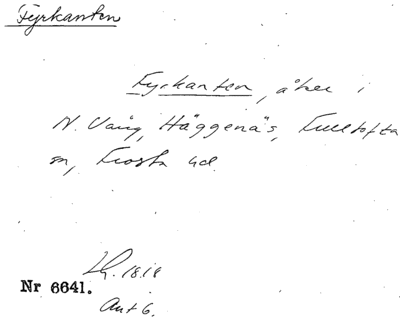 Fyrkanten
Fyrkanten, åker i
N. Vång, Häggenäs, Fulltofta
sn, Frosta hd.
1818
Nr 6641.
Ant 6.